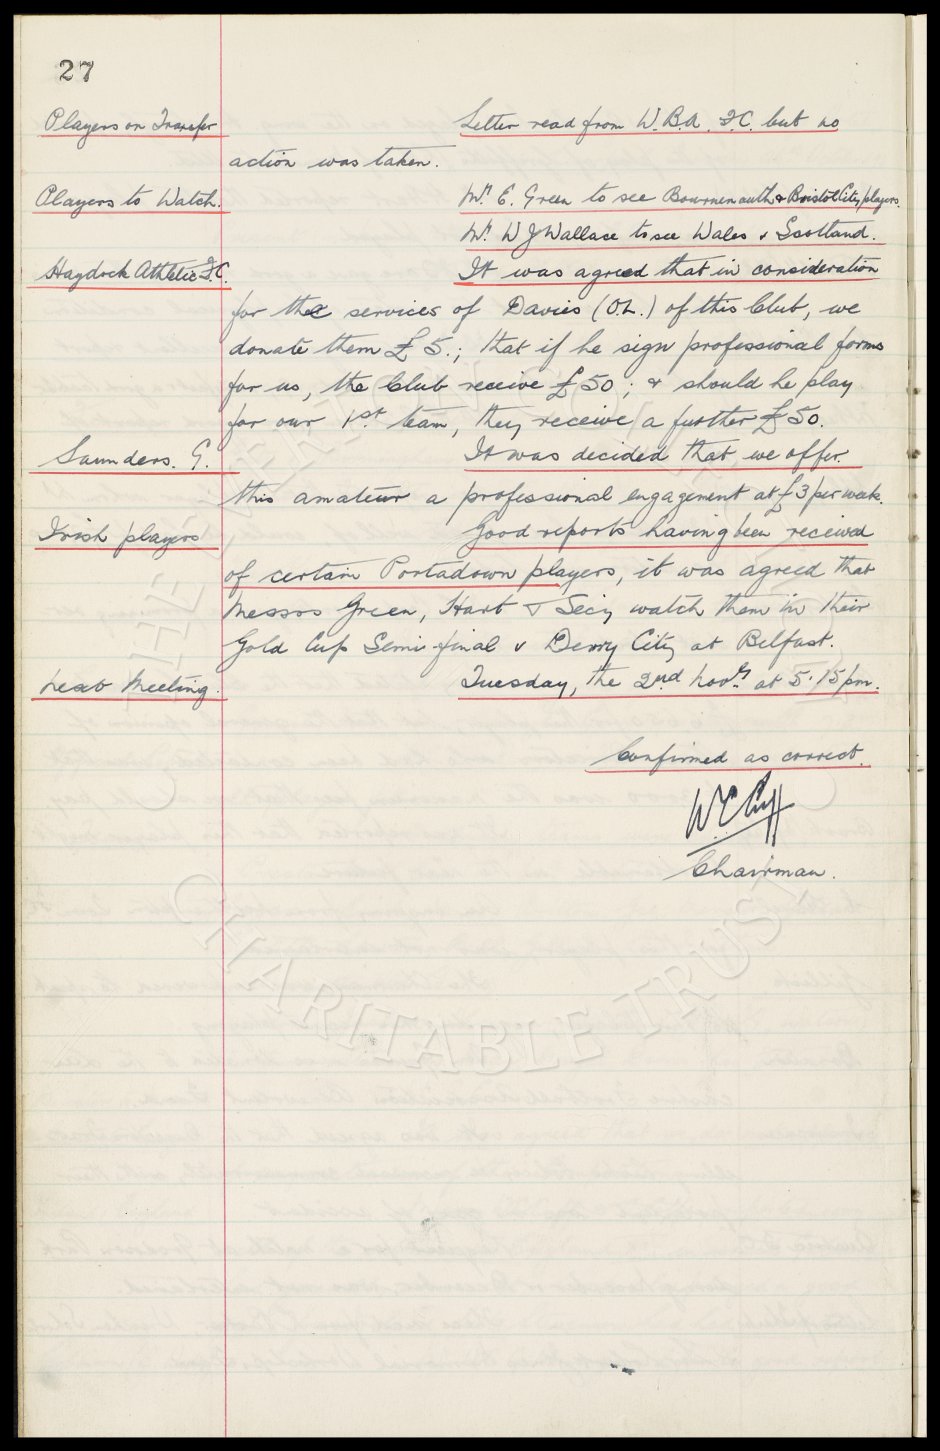 27
Players on Transfer Letter read from W.B.A. F.C. but no
action was taken.
Players to Watch. Mr. E. Green to see Bournemouth & Bristol City players.
Mr. W J Wallace to see Wales v Scotland.
Haydock Athletic F.C. It was agreed that in consideration
for the services of Davies (O.L.) of this Club, we
donate them £5.; that if he sign professional forms
for us, the Club receive £50; & should he play
for our 1st team, they receive a further £50.
Saunders. G. It was decided that we offer
this amateur a professional engagement at £3 per week.
Irish players Good reports having been received
of certain Portadown players, it was agreed that
Messrs Green, Hart & Secy watch them in their
Gold Cup Semi-final v Derry City at Belfast.
Next Meeting. Tuesday, the 2nd Novr. at 5.15pm.
Confirmed as correct.
W C Cuff
Chairman.
THE EVERTON COLLECTION
CHARITABLE TRUST